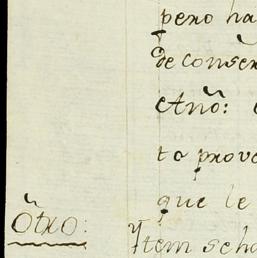 pero ha
de conser
Año:
to prove
que le
Otro:
Item seha